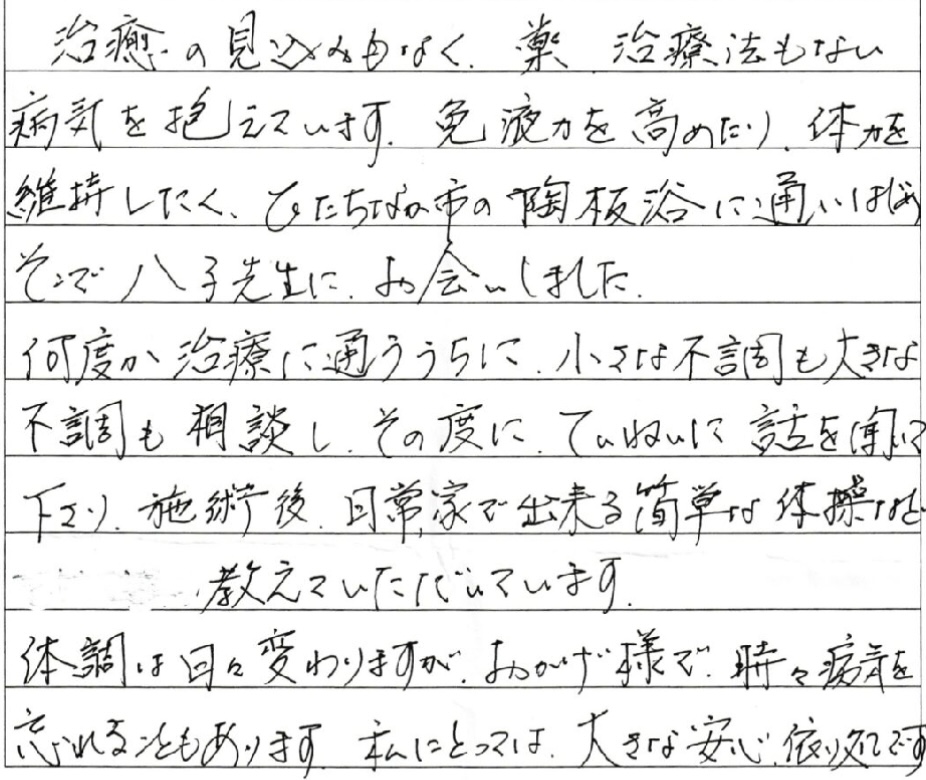 治癒の見込みもなく、薬、治療法もない
病気を抱えています。免疫力を高めたり、体力を
維持したく、ひたちなか市の陶板浴に通いはじめ
そこで八子先生に、お会いしました。
何度か治療に通ううちに、小さな不調も大きな
不調も相談し、その度に、ていねいに話を聞いて
下さり、施術後、日常、家で出来る簡単な体操など
教えていただいています。
体調は日々変わりますが、おかげ様で、時々病気を
忘れることもあります。私にとっては、大きな安心、依り処です